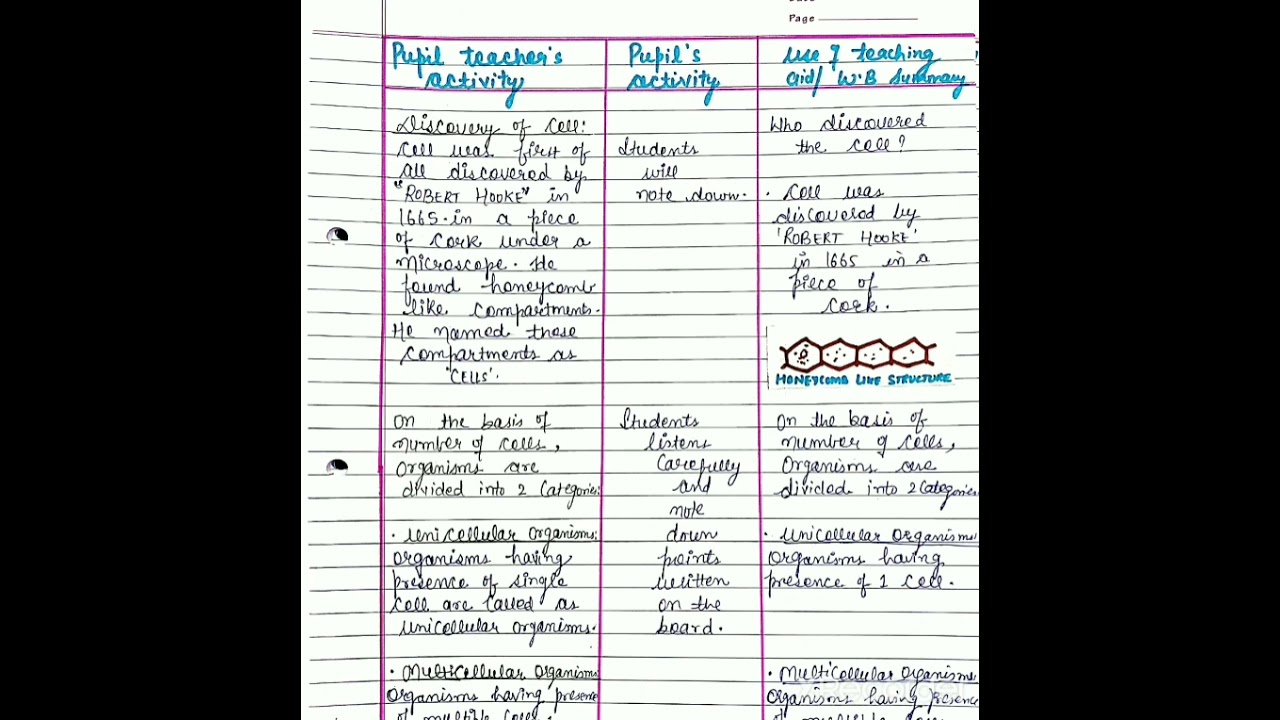 Page
Pupil teacher's
activity
Pupil's
activity
use of teaching
aid/ W.B Summary
Discovery of cell:
Cell was first of
all discovered by
"ROBERT HOOKE" in
1665. in a piece
of cork under a
Microscope. He
found honeycomb
like compartments.
He named these
compartments as
'CELLS'.
Students
will
note down.
Who discovered
the cell?
• Cell was
discovered by
'ROBERT HOOKE'
in 1665 in a
piece of
cork.
HONEYCOMB LIKE STRUCTURE
On the basis of
number of cells,
Organisms are
divided into 2 Categories:
• Unicellular Organisms:
Organisms having
presence of single
cell are called as
unicellular organisms.
• Multicellular Organisms
Organisms having presence
of multiple cells.
Students
listens
Carefully
and
note
down
points
written
on the
board.
On the basis of
number of cells,
Organisms are
divided into 2 Categories
• Unicellular Organisms
Organisms having
presence of 1 cell.
• Multicellular Organisms
Organisms having presence
of multiple cells